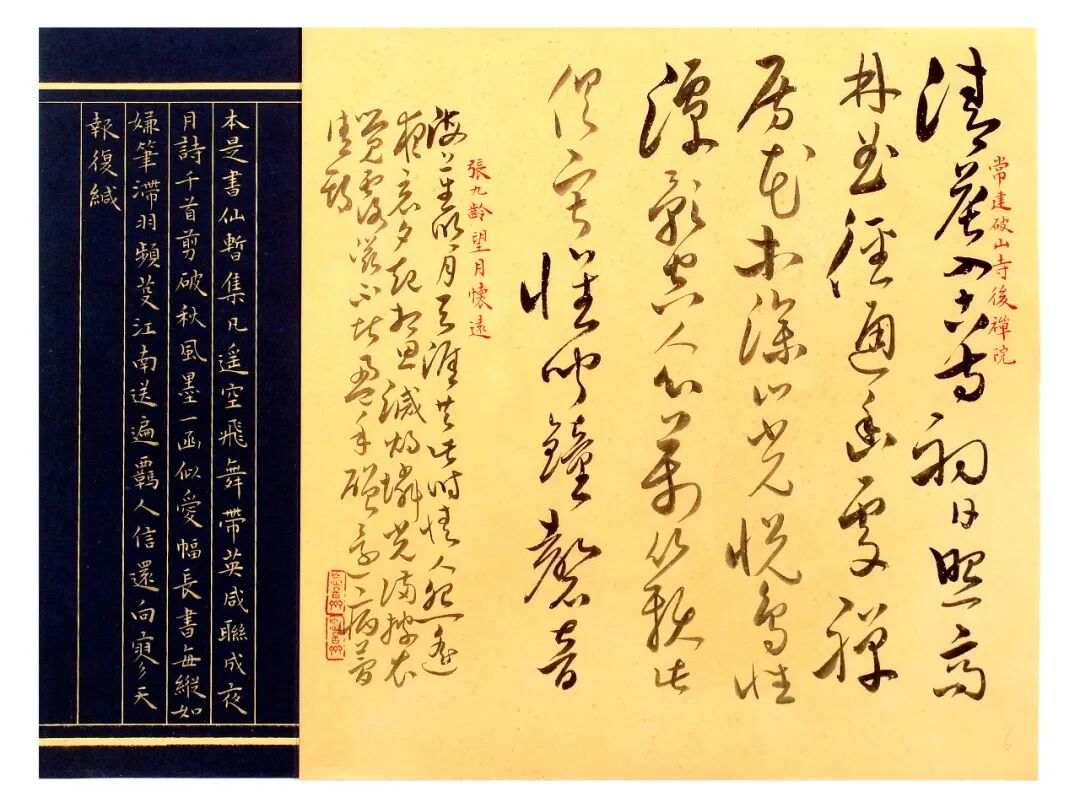 常建破山寺後禪院
清晨入古寺初日照高
林曲徑通幽處禪
房花木深山光悅鳥性
潭影空人心萬籟此
俱寂惟聞鐘磬音
張九齡望月懷遠
海上生明月天涯共此時情人怨遙
夜竟夕起相思滅燭憐光滿披衣
覺露滋不堪盈手贈還寢夢
佳期
本是書仙暫集凡遥空飛舞帶英咸聯成夜
月詩千首剪破秋風墨一函似愛幅長書每縱如
嫌筆滯羽頻蔓江南送遍羈人信還向寥天
報復緘